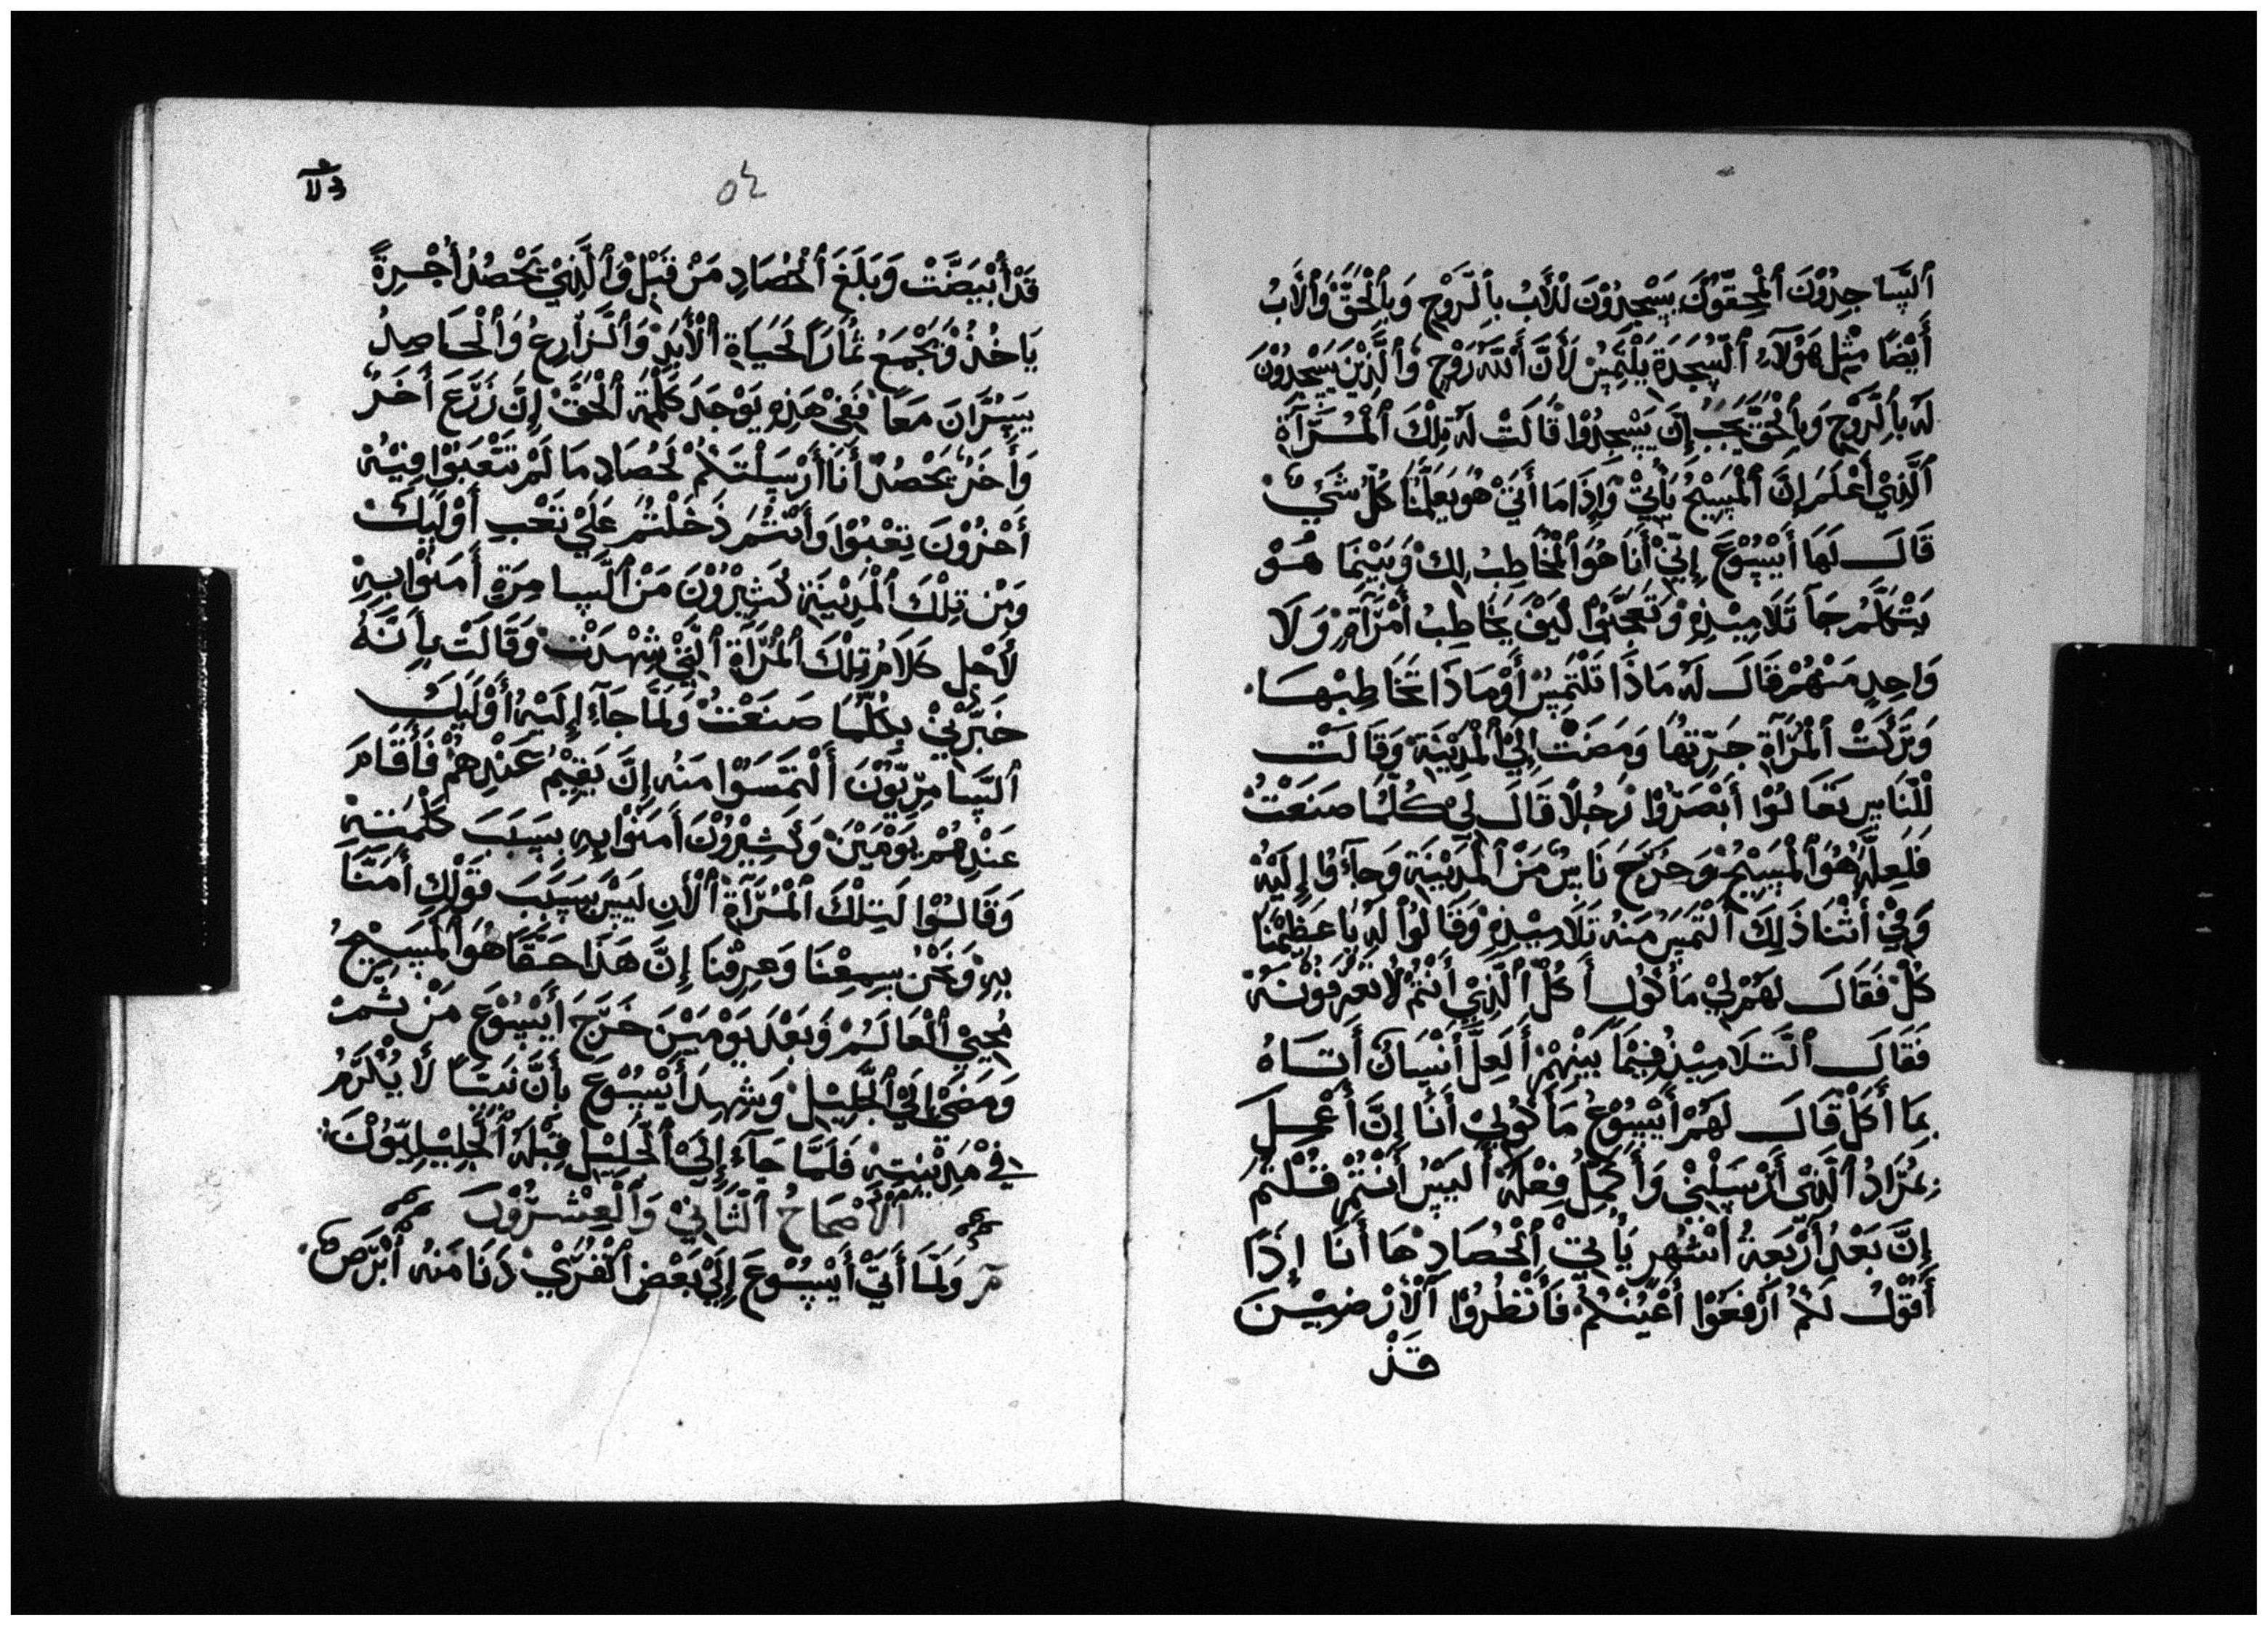 ٱلسَّاجِدُوْنَ ٱلْمُحِقّوُنَ يَسْجِدُوْنَ لْلْأَبُ بِٱلرَوْحِ وَبِٱلْحَقَّ وَٱلَابُ
أَيْضًا مِثْلِ هَوُلَآءِ ٱلسُّجَدَةِ يَلْتَمِسْ لَأَنَّ أَللَّهَ رَوْحِ وَٱلَّذِيْنَ يَسْجُدُوْنَ
لَهُ بِٱلرَّوْحِ وَبِٱلْحَقّ يَجَبْ إِنَّ يَسْجِدُوْا قَالَتْ لَهُ تِلْكَ ٱلْمُرَّآةِ
ٱلَّذِيْ أَعْلَمَ إِنَّ ٱلْمَسِيْحُ يَأْتِيْ وَإِذَا مَا أَتَيْ هُوَ يَعَلَّمُنَا كُلَّ شَيْ
قَالَ لَهَا أَيْسُوْعَ إِنِّيْ أَنَا هُوَ ٱلْمُخَاطِبُ لِكْ وَبَيْنَمَا هُوْ
يَتْكَلَّمُ جَآ تَلَامِيْذِهِ وَتَعَجَّبُوْا كَيْفَ يُخَاطِبُ أَمْرَآةٍ وَلَا
وَاحِدٍ مَنْهُمْ قَالَ لَهُ مَاذَا تَلْتَمِسْ أَوْ مَاذَا تُخَاطِبْهَا
وَتَرَكَتْ ٱلْمُرْآةِ جَرِّتَهَا وَمَضَتْ إِلَيْ ٱلْمَدِيْنَةِ وَقَالَتْ
لْلْنَاسِ تَعَالُوْا أَبْصَرُوْا رَجُلًا قَالَ لِيْ كُلُمَا صَنَعْتُ
فَلَعِلَّهُ هُوَ ٱلْمَسِيْحُ وَخَرَجَ نَاسٌ مَنْ ٱلْمَدِيْنَةِ وَجَآءُوْا إِلَيْهُ
وَفِيْ أَثْنَا ذَلِكَ ٱلْتَمَسَ مَنْهُ تَلَامِيْذِهِ وَقَالُوْا لَهُ يَا عَظِيْمُنَا
كُلْ فَقَالَ لَهُمْ لِيْ مَأْكُولُ أَكُلْ ٱلَّذِيْ أَنْتُمْ لَا تَعْرِفُوْنَهُ
فَقَالَ ٱلتَّلَامِيْذُ فِيْمَا بَيْنِهِمْ أَلَعِلَّ أَنْسَانٌ أَتَاهُ
بِمَا أَكَلْ قَالَ لَهُمْ أَيْسُوْعُ مَأْكُوْلِيْ أَنَا إِنَّ أَعْمِلَ
بِمُرَادُ ٱلَّذِيْ أَرْسَلْنِيْ وَأَكَمِّلْ فِعْلَهُ أَلَيْسَ أَنْتُمْ قُلْتُمْ
إِنَّ بَعْدُ أَرْبَعَةُ أَشْهُرٍ يَأْتِيْ ٱلْحُصَادِ هَا أَنَا إِذَا
أَقُوْلُ لَكُمْ ٱرْفَعَوْا أَعْيُنَكُمْ فَأَنْظُرُوْا ٱلْأَرْضِيْنَ
قَدْ
٥٤
قَدْ أَبْيَضَّتْ وَبَلَغَ ٱلْحُصَادِ مَنْ قَبْلْ وَٱلَّذِيْ يَحْصُدُ أُجْرِةً
يَاخُذُ وْيَجْمَعُ ثَمَارَ ٱلْحَيَاةِ ٱلْأَبَدِ وَٱلزَّارِعُ وَٱلْحَاصِدُ
يَسُرَّانَ مَعًا فَفِيْ هَذِهِ يَوْجَدَ كَلْمَةَ ٱلْحَقَّ إِنَّ زَرَّعَ أَخَرٌ
وَأَخَرٌ يَحْصُدُ أَنَا أَرْسَلْتَكُمْ لَحُصَادِ مَا لَمْ تَتْعَبَوْا فِيْهْ
أَخْرُوْنَ تِعْبَوْا وَأَنْتُمُ دَخَلْتُمْ عَلَيْ تَعْبِ أَوْلَيِكَ
وَمْنِ تِلْكَ ٱلْمَدِيْنَةِ كَثِيْرُوْنَ مَنْ ٱلسَّامِرَةِ أَمَنْوْا بِهِ
لَأَجْلِ كَلَامُ تِلْكَ ٱلْمُرْآةِ ٱلَّتِيْ شِهْدَتْ وَقَالَتْ بِأَنَّهُ
خَبَّرْنِيْ بِكُلَّمَا صَنَعْتُ وَلَمَّا جَآءَ إِلَيْهُ أَوْلَيِكَ
ٱلسَّامِرِيَّوْنَ أَلْتَمَسَوْا مَنْهُ إِنَّ يَقِيْمُ عَنْدِهِمْ فَأَقَامَ
عَنْدِهِمْ يَوْمَيْنَ وَكَثِيْرُوْنَ أَمَنَوْا بِهِ بِسَبَبَ كَلْمَتِهِ
وَقَالُوْا لَتِلْكَ ٱلْمُرْآةِ ٱلْأَنِ لَيْسَ بِسَبَبَ قَوْلِكِ أَمَنَّا
بِهِ وَنَحْنُ سِمِعْنَا وَعِرِفْنَا إِنَّ هَذَا حَقًا هُوَ ٱلْمَسِيْحُ
مُحْيِيْ ٱلْعَالَمُ وَبَعْدَ يَوْمَيْنَ خَرَجَ أَيْسُوْعَ مَنْ ثَمْ
وَمَضَيْ إِلَيْ ٱلْجَلِيْلِ وَشِهِدَ أَيْسُوْعَ بِأَنَّ نَبِيًّا لَا يُكْرَمُ
فِيْ مَدِيْنِتِهِ فَلَمَّا جَآءَ إِلَيْ ٱلْجَلِيْلِ قِبْلَهُ ٱلْجَلِيْلِيّوُنَ
ٱلْأَصْحَاحُ ٱلثَّانِيْ وَٱلْعِشْرُوْنَ
وَلَمَا أَتَيْ أَيْسُوْعَ إِلَيْ بَعْضِ ٱلْقُرَيْ دَنَا مَنْهُ أَبْرَصُ